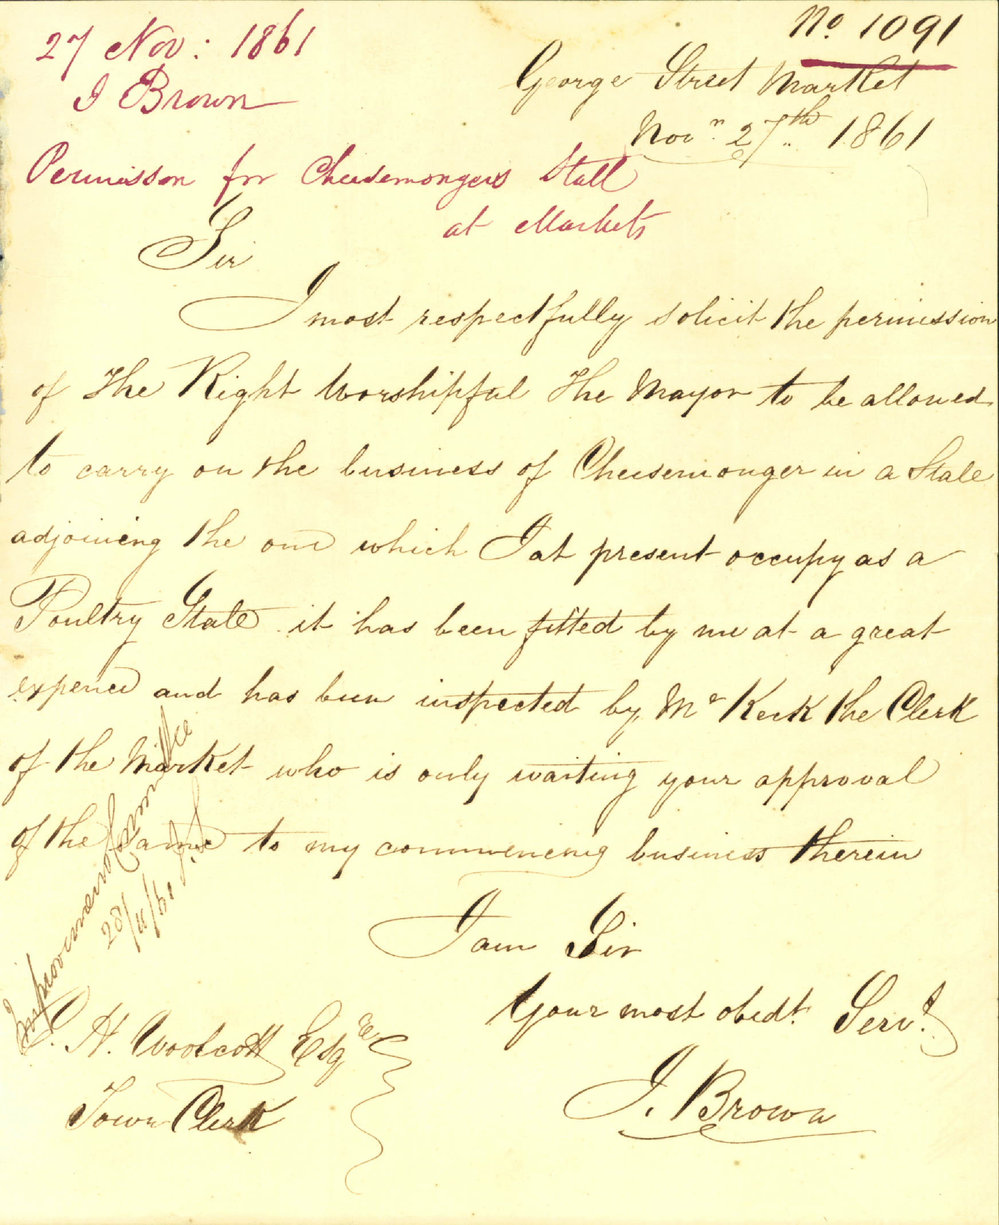 No. 1091
27 Nov: 1861
J Brown
George Street Market
Novr. 27th 1861
Permisson for Cheesemongers Stall
at Markets
Sir
I most respectfully solicit the permission
of The Right Worshipful The Mayor to be allowed
to carry on the business of Cheesemonger in a Stale
adjoining the one which I at present occupy as a
Poultry Stale it has been fitted by me at a great
expence and has been inspected by Mr Kerk the Clerk
of the Market who is only waiting your approval
of the same to my commencing business therein
I am Sir
Your most obedt. Servt.
J. Brown
Improvement Committee
28/11/61
C. H. Woolcott Esqre
Town Clerk